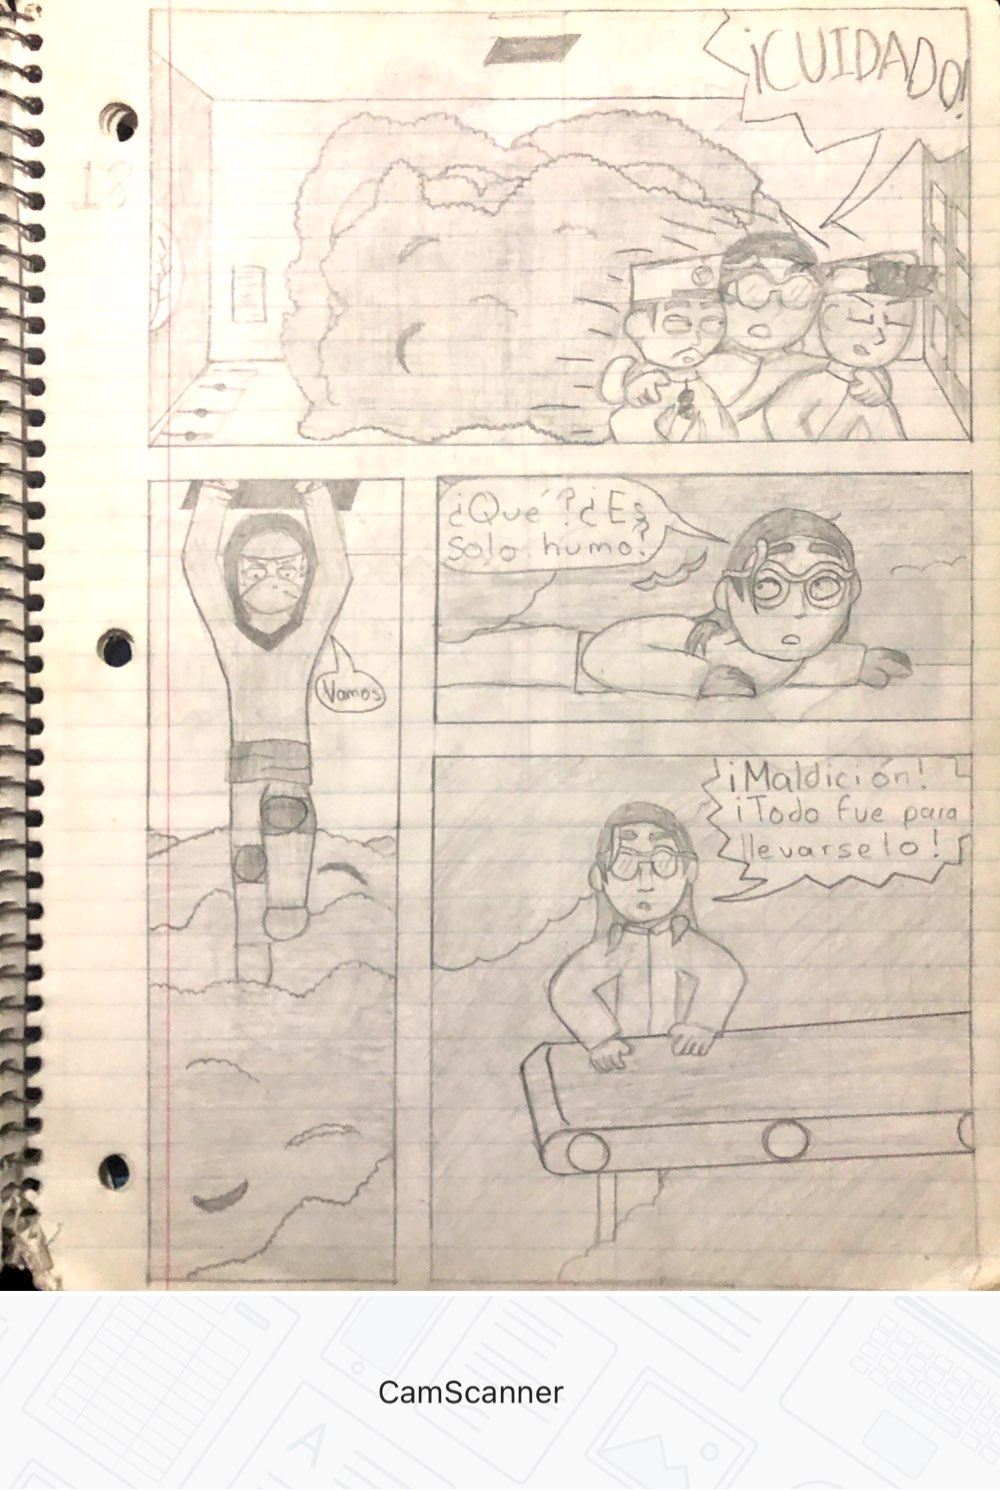 18
¡CUIDADO!
¿Qué? ¿Es
solo humo?
Vamos
¡Maldición!
¡Todo fue para
llevarselo!
CamScanner